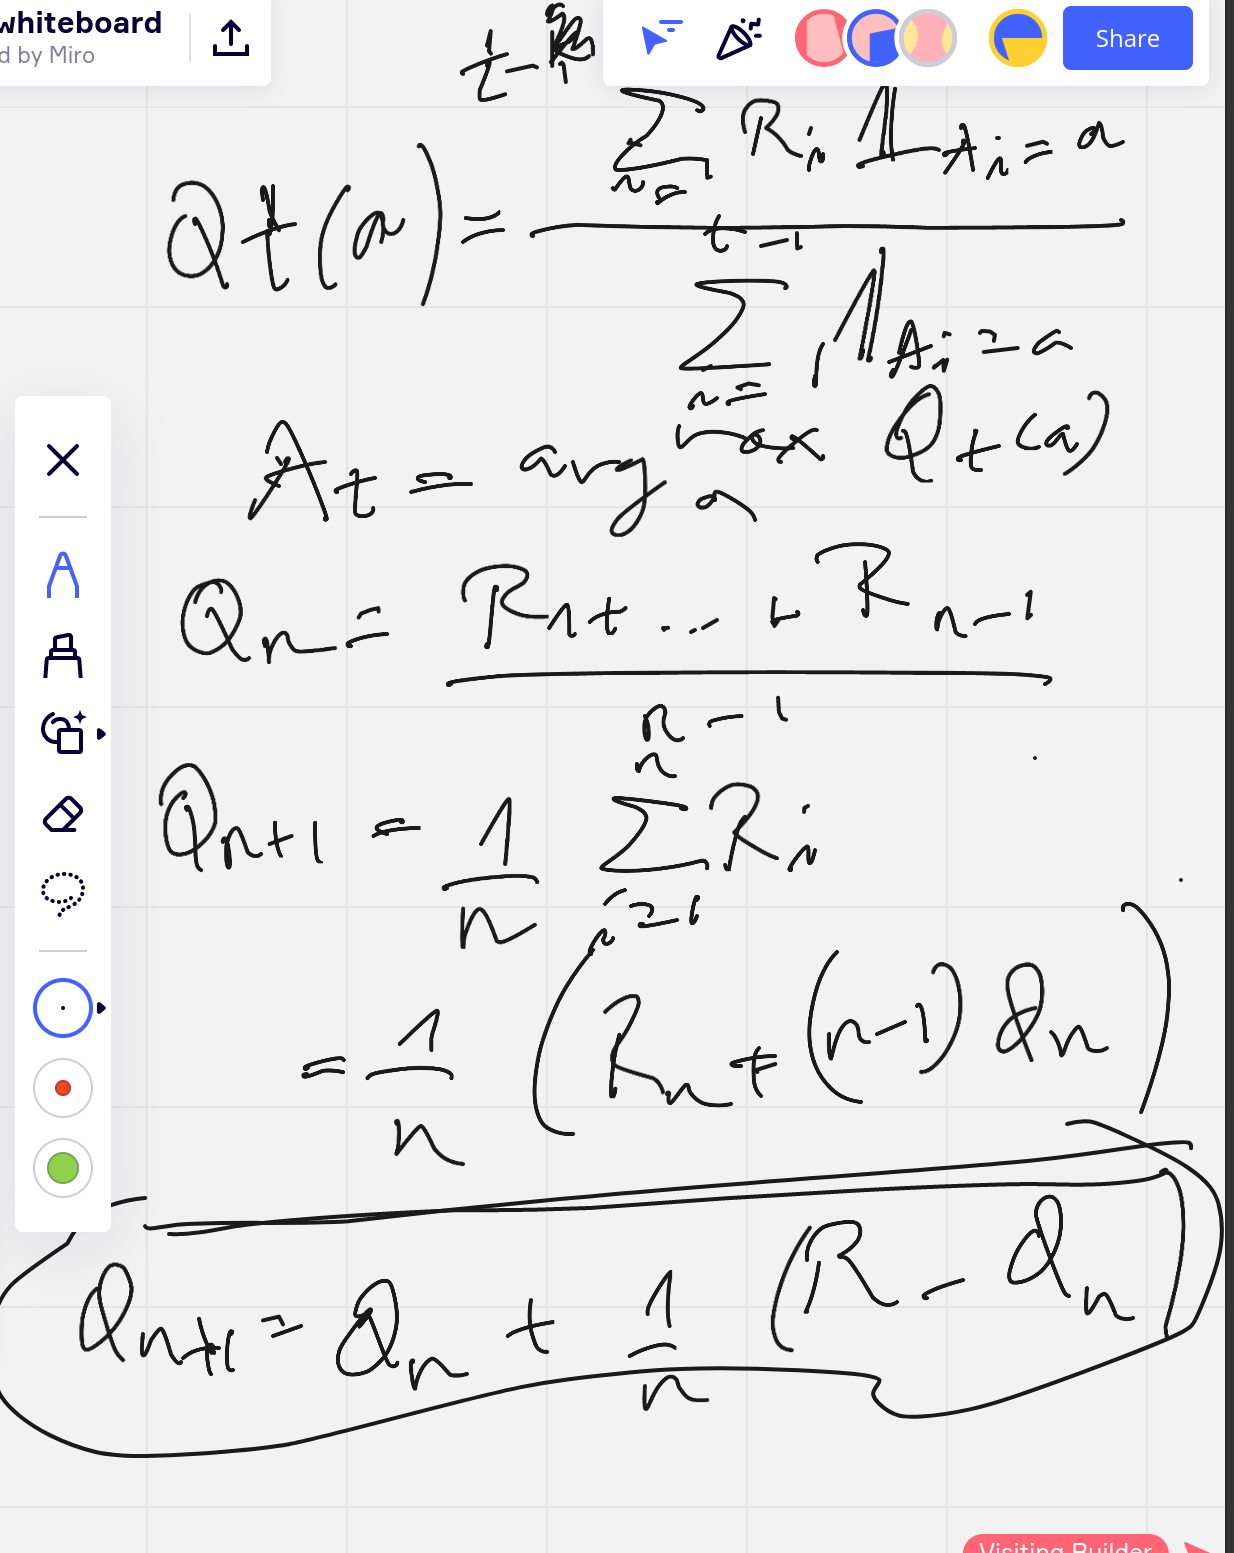 whiteboard
d by Miro
Share
t-1
Qt(a) = Σ Ri 1Ai=a
i=
t-1
Σ 1Ai=a
i=
At = arg max Qt(a)
a
Qn = R1+ ... + Rn-1
n-1
n
Qn+1 = 1 Σ Ri
n i=1
= 1 (Rn + (n-1) Qn)
n
Qn+1 = Qn + 1 (R - Qn)
n
Visiting Builder